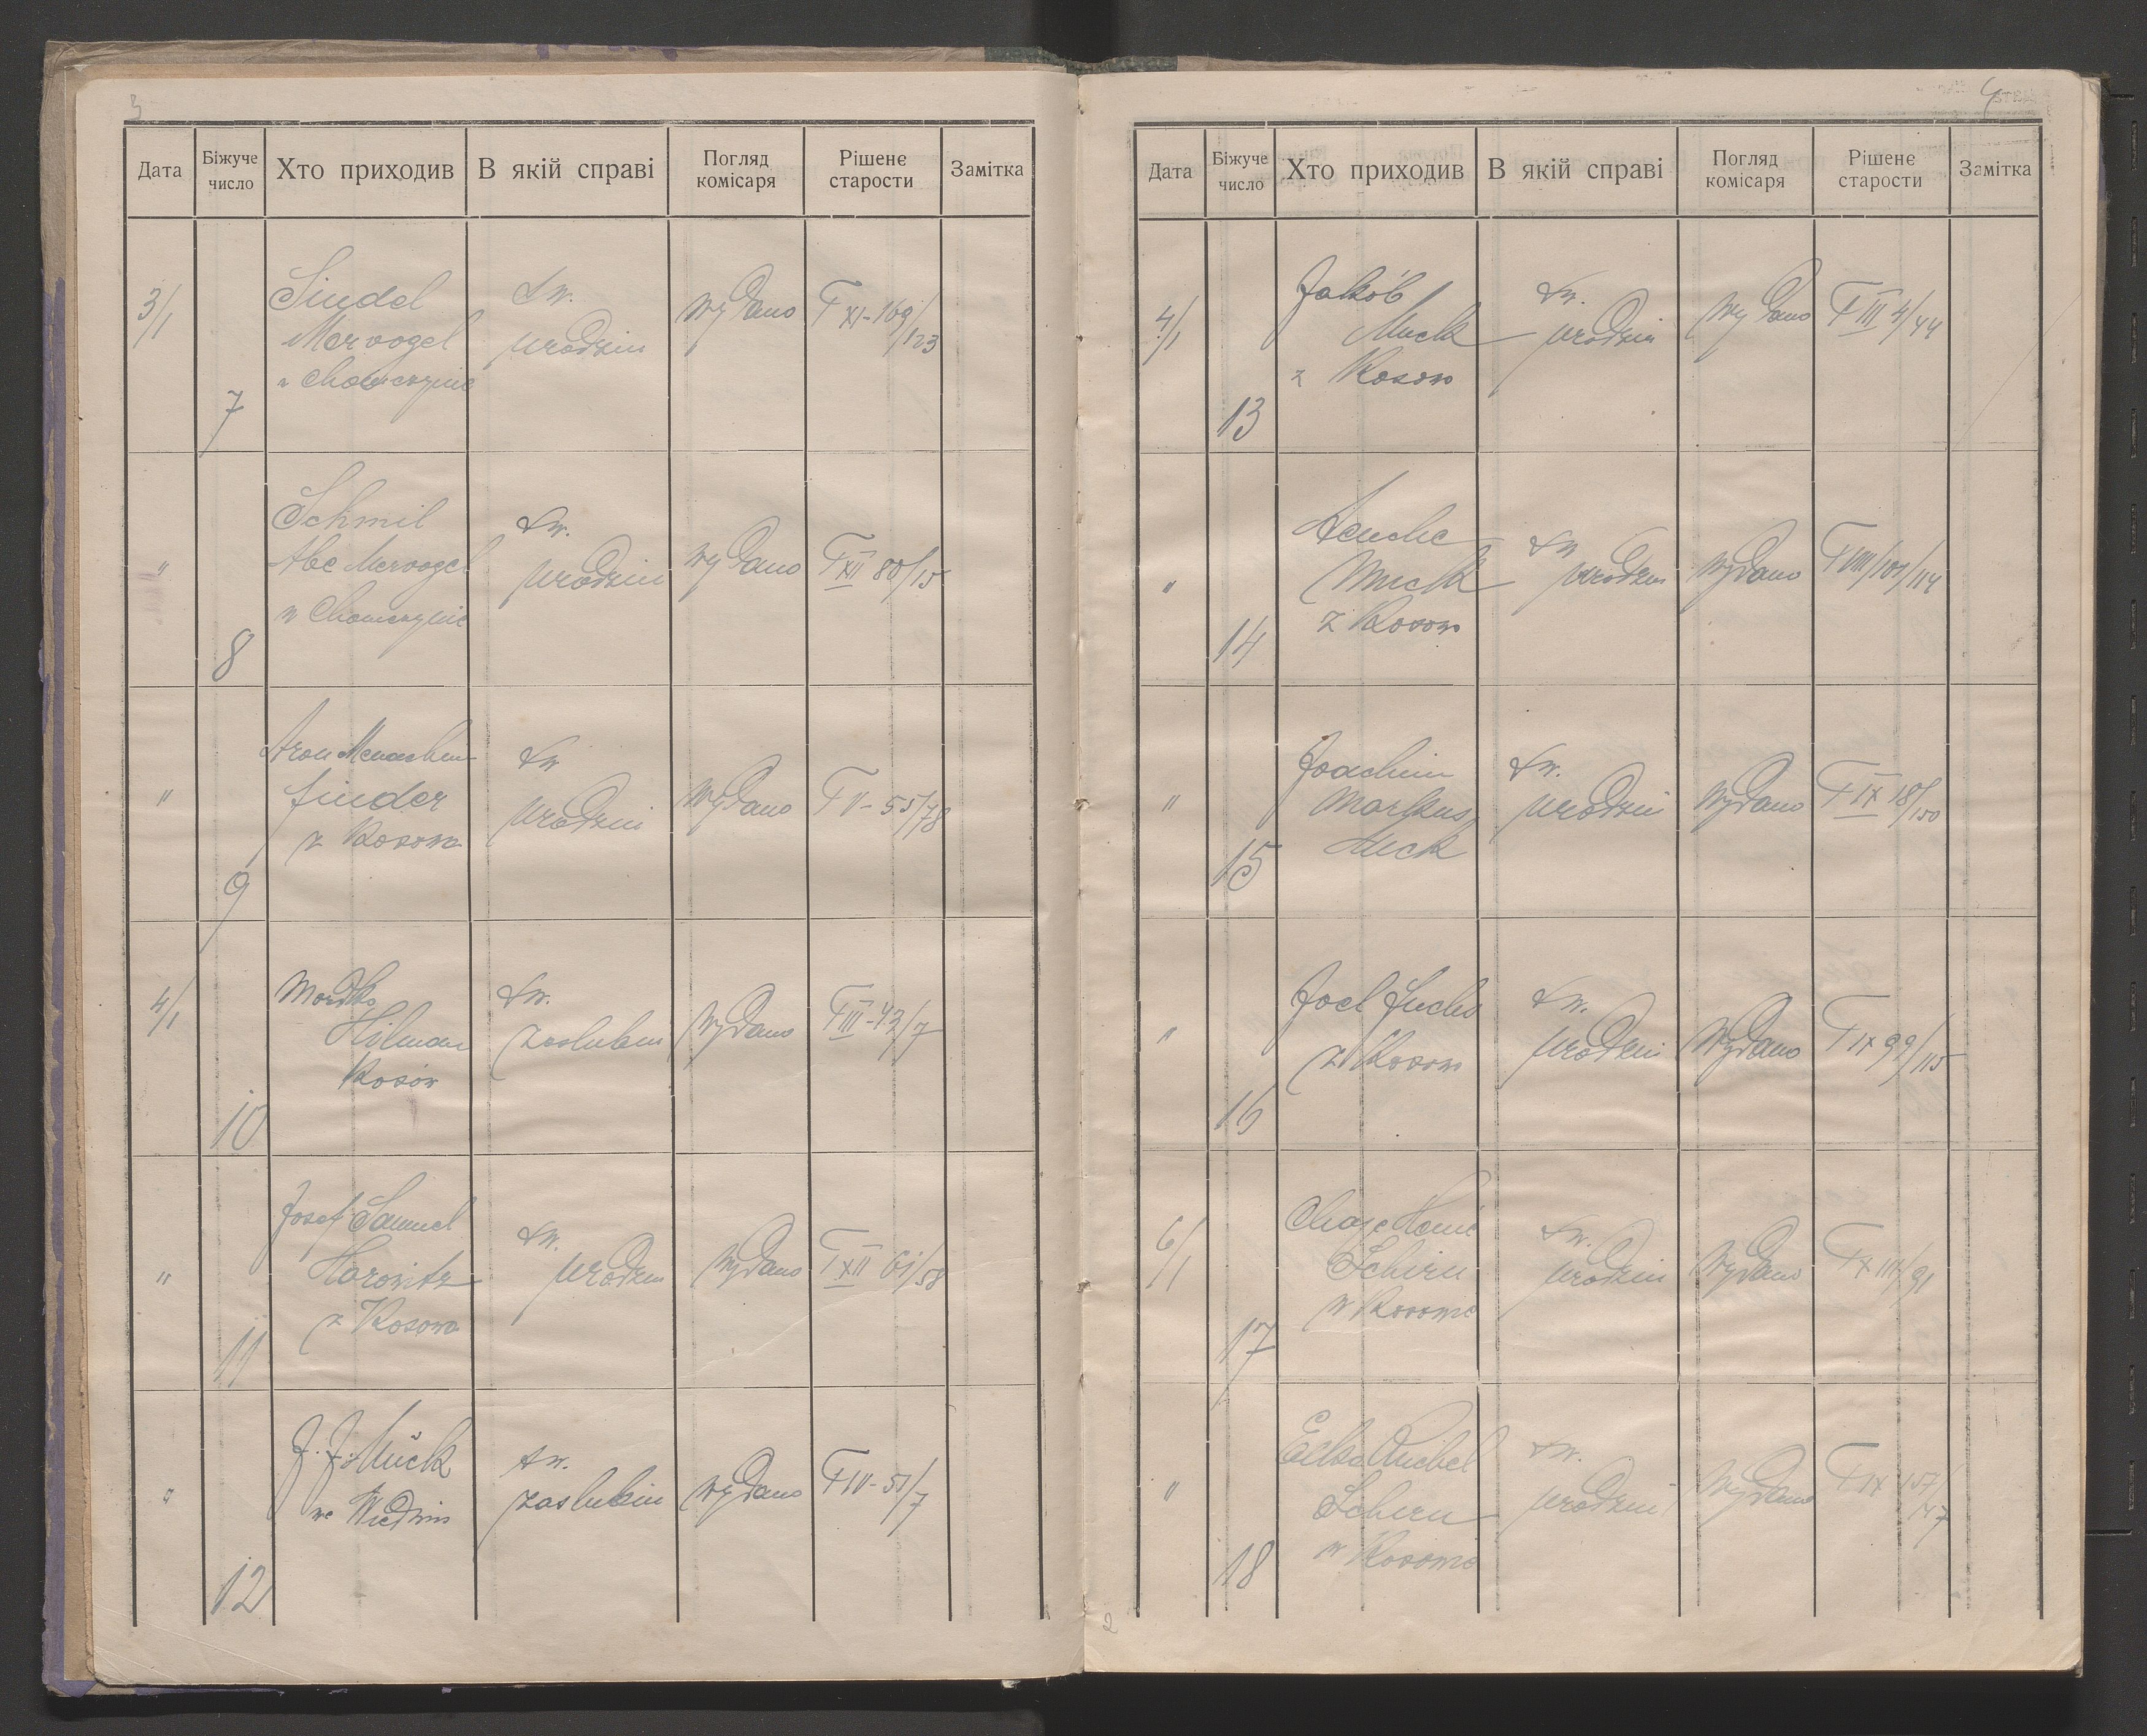 3
Дата
Біжуче
число
Хто приходив
В якій справі
Погляд
комісаря
Рішенє
старости
Замітка
3/1
7
Sindel
Mervogel
w Chomczynie
Św.
urodzin
wydano
T XI-169/123
"
8
Schmil
Abe Mervogel
w Chomczynie
Św.
urodzin
wydano
T XII 80/15
"
9
Aron Menachem
finder
z Kosowa
Św
urodzin
wydano
T V-55/78
4/1
10
Mordko
Hilman
Kosów
Św.
zaslubin
wydano
T III-43/7
"
11
Josef Samuel
Horowitz
z Kosowa
Św.
urodzin
wydano
T XII 61/58
"
12
J. J. Mück
we Wiedniu
św.
zaslubin
wydano
T IV-51/7
4
Дата
Біжуче
число
Хто приходив
В якій справі
Погляд
комісаря
Рішенє
старости
Замітка
4/1
13
Jakób
Muck
z Kosow
Św.
urodzin
wydano
T III 4/44
"
14
Muck
z Kosow
Św
urodzin
wydano
T VIII/101/114
"
15
Joachim
Markus
Muck
Św.
urodzin
wydano
T IX 18/150
"
16
Joel Fuchs
z Kosow
Św.
urodzin
wydano
T IX 99/115
6/1
17
Chaje Henie
Schirn
w Kosowie
Św.
urodzin
wydano
T X 111/91
"
18
Schirn
w Kosowie
Św.
urodzin
wydano
T IX 157/147
2